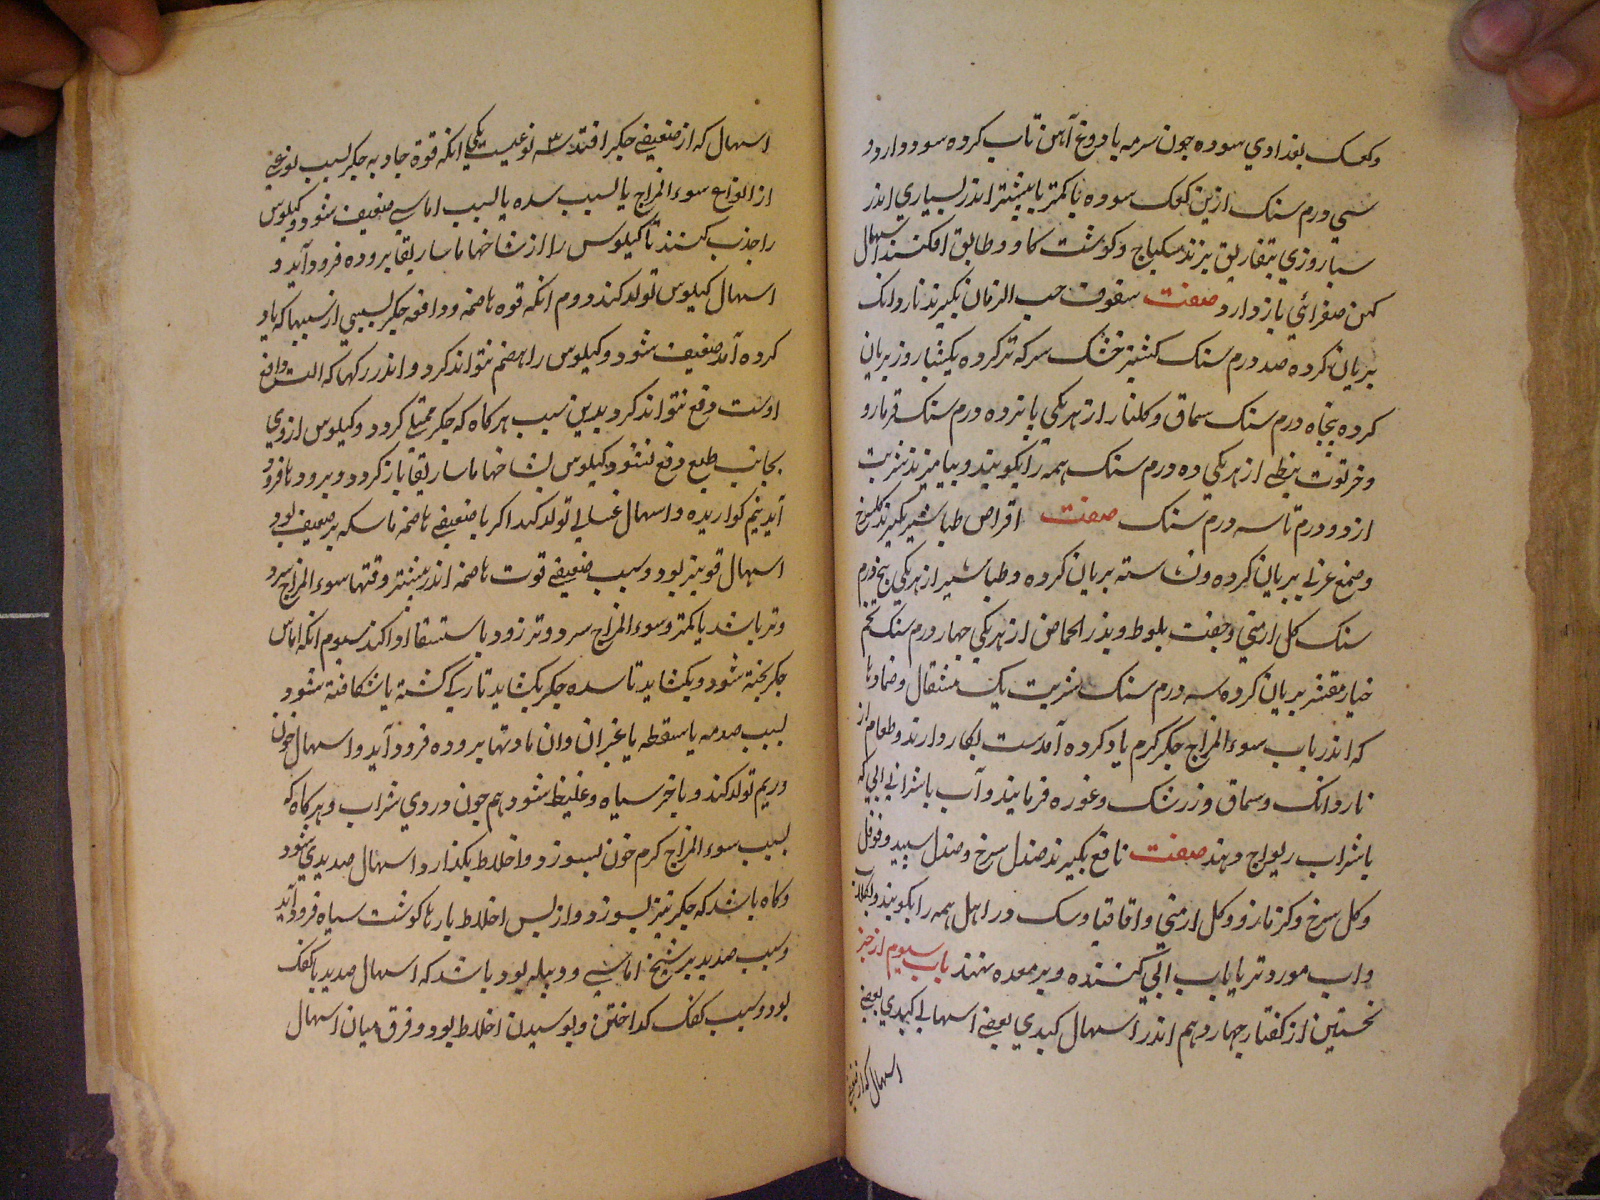 وکعک بغدادي سوده چون سرمه با دوغ آهن تاب کرده سود دارد و
سي درم سنک ازین کعک سوده یا کمتر یا بیشتر اندر بسیاري اندر
شباروزي بتفاریق بزند سکباج وکوشت کاو و طابق افکنند اسهال
کهن صفرائي بازدارد صفت سفوف حب الرمان بکیرند ناردانک
بریان کرده صد درم سنک کشنیز خشک سرکه تر کرده یکشباروز بریان
کرده پنجاه درم سنک سماق وکلنار از هریکي پانزده درم سنک
وخرنوب نبطي از هریکي ده درم سنک همه را بکوبند و بیامیزند شربت
از دو درم تا سه درم سنک صفت اقراص طباشیر بکیرند کلسرخ
وصمغ عربي بریان کرده ونشاسته بریان کرده وطباشیر از هریکي پنج درم
سنک کل ارمني وجفت بلوط وبذر الحماض از هریکي چهار درم سنک تخم
خیار مقشر بریان کرده سه درم سنک شربت یک مثقال وضمادها
که اندر باب سوء المزاج جکر کرم یاد کرده آمدست بکار دارند وطعام از
ناردانک وسماق وزرشک وغوره فرمایند وآب با شرابي آبي که
با شراب ریواج دهند صفت نافع بکیرند صندل سرخ وصندل سپید وفوفل
وکل سرخ وکزمازو وکل ارمني واقاقیا وسک ورامک همه را بکوبند وبکلاب
واب مورد تر یا باب آبي کننده وبر معده نهند باب سیوم از جزو
نخستین از کفتار چهاردهم اندر اسهال کبدي بعضي اسهالهاي کبدي بعضي
اسهال که از ضعیفي
اسهال که از ضعیفي جکر افتد سه نوعیست یکي انکه قوة جاذبه جکر بسبب نوعي
از انواع سوء المزاج یا بسبب سده یا بسبب اماسي ضعیف شود وکیلوس
را جذب کنند تا کیلوس را از شاخها ماساریقا بروده فرود آید و
اسهال کیلوس تولد کند دوم انکه قوه هاضمه ودافعه جکر بسببي از سببها که یاد
کرده آمد ضعیف شود وکیلوس را هضم نتواند کرد و اندر رکها که الت دافع
اوست دفع نتواند کرد بدین سبب هرکاه که جکر ممتلي کردد وکیلوس از وي
بجانب طبع دفع نشود کیلوس بشاخها ماساریقا باز کردد وبروده فرود
آید نیم کواریده واسهال غسالي تولد کند اکر با ضعیفي هاضمه ماسکه بر ضعیف بود
اسهال قویتر بود وسبب ضعیفي قوت هاضمه اندر بیشتر وقتها سوء المزاج سرد
وتر باشد یا کمتر وسوء المزاج سرد وتر زود باستسقا ادا کند سیوم انکه اماس
جکر پخته شود وبکشاید تا سده جکر بکشاید تا رکي کسسته یا شکافته شود
بسبب صدمه یا سقطه یا غیر ان وان مادتها بروده فرود آید واسهال خون
وریم تولد کند وباخر سیاه وغلیظ شود هم چون دردي شراب وهرکاه که
بسبب سوء المزاج کرم خون بسوزد واخلاط بکدازد اسهال صدیدي شود
وکاه باشد که جکر نیز بسوزد واز پس اخلاط پارها کوشت سیاه فرود آید
وسبب صدید بر شیخ اماسي ودبیله بود باشد که اسهال صدید با کفک
بود وسبب کفک کداختن وبوسیدن اخلاط بود وفرق میان اسهال